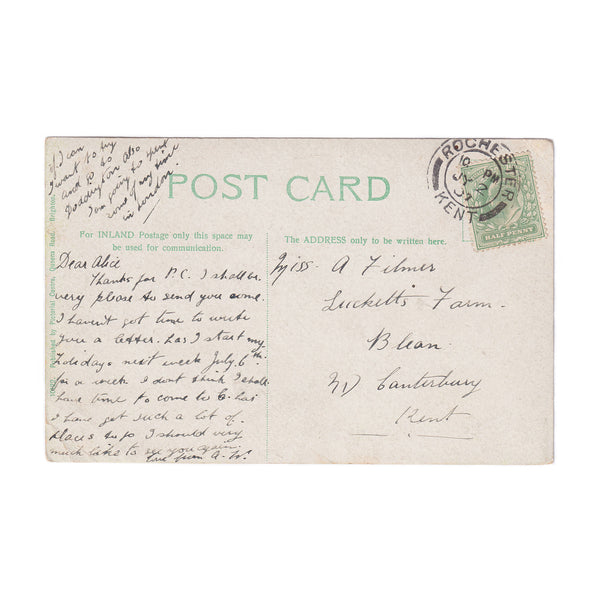 If I can
I want to try
and go to
Doddington also
I am going to spend
some of my time
in London
POST CARD
ROCHESTER
10 PM
JY 2
07
KENT
HALF PENNY
For INLAND Postage only this space may
be used for communication.
The ADDRESS only to be written here.
Dear Alice
Thanks for P.C. I shall be
very please to send you some.
I havent got time to write
you a letter. has I start my
holidays next week July 6th
for a week I dont think I shall
have time to come to C. has
I have got such a lot of.
places to go I should very
much like to see you again
love from A. W.
Miss. A Filmer
Luckett's Farm.
Blean.
Nr Canterbury
Kent
Published by Pictorial Centre, Queens Road, Brighton.